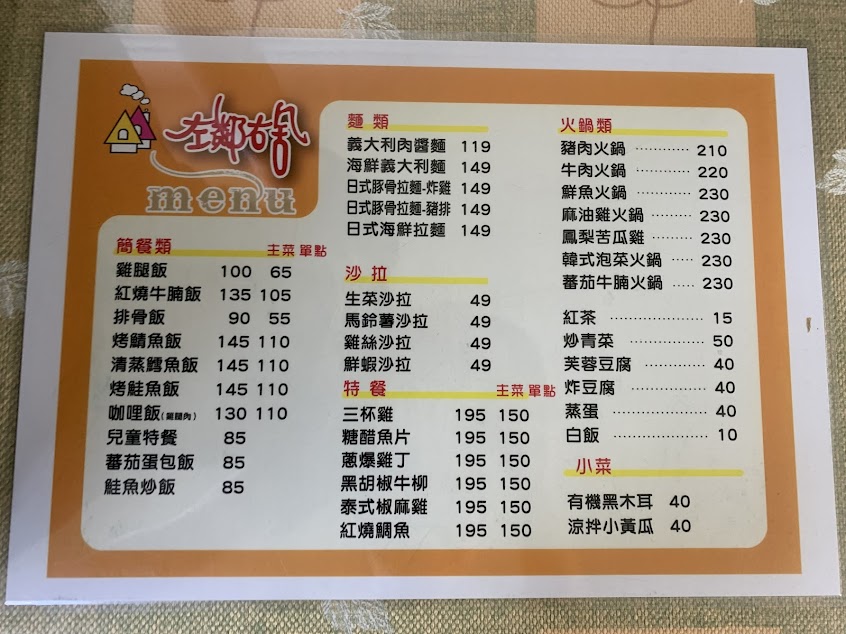 左鄰右舍
menu
簡餐類 主菜單點
雞腿飯 100 65
紅燒牛腩飯 135 105
排骨飯 90 55
烤鯖魚飯 145 110
清蒸鱈魚飯 145 110
烤鮭魚飯 145 110
咖哩飯(雞腿肉) 130 110
兒童特餐 85
蕃茄蛋包飯 85
鮭魚炒飯 85
麵類
義大利肉醬麵 119
海鮮義大利麵 149
日式豚骨拉麵-炸雞 149
日式豚骨拉麵-豬排 149
日式海鮮拉麵 149
沙拉
生菜沙拉 49
馬鈴薯沙拉 49
雞絲沙拉 49
鮮蝦沙拉 49
特餐 主菜單點
三杯雞 195 150
糖醋魚片 195 150
蔥爆雞丁 195 150
黑胡椒牛柳 195 150
泰式椒麻雞 195 150
紅燒鯛魚 195 150
火鍋類
豬肉火鍋 ············ 210
牛肉火鍋 ············ 220
鮮魚火鍋 ············ 230
麻油雞火鍋 ········ 230
鳳梨苦瓜雞 ········ 230
韓式泡菜火鍋 ····· 230
蕃茄牛腩火鍋 ····· 230
紅茶 ····················· 15
炒青菜 ················· 50
芙蓉豆腐 ············· 40
炸豆腐 ················· 40
蒸蛋 ····················· 40
白飯 ····················· 10
小菜
有機黑木耳 40
涼拌小黃瓜 40